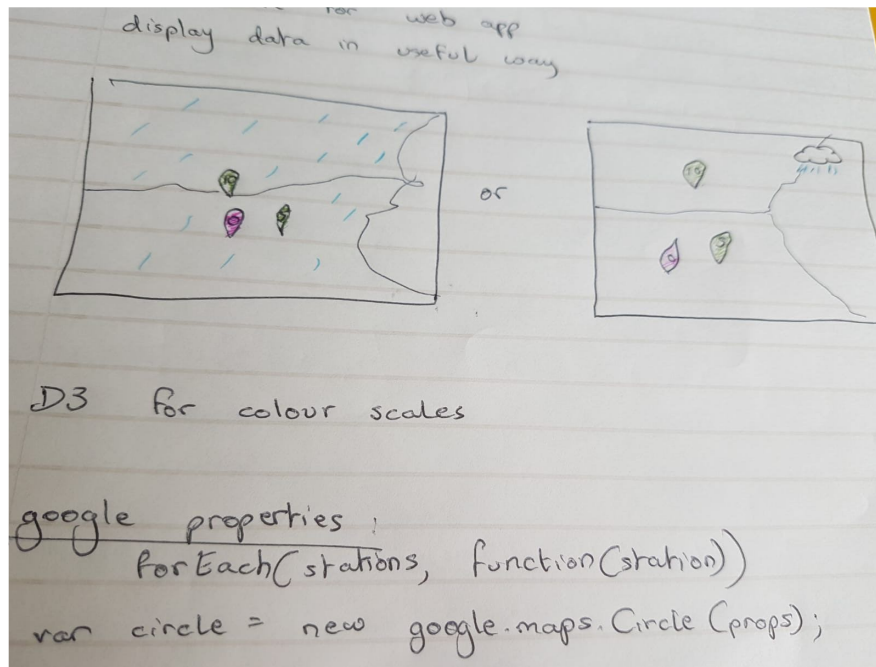 for web app
display data in useful way
10
or
10
D3 for colour scales
google properties:
forEach(stations, function(station))
var circle = new google.maps.Circle(props);